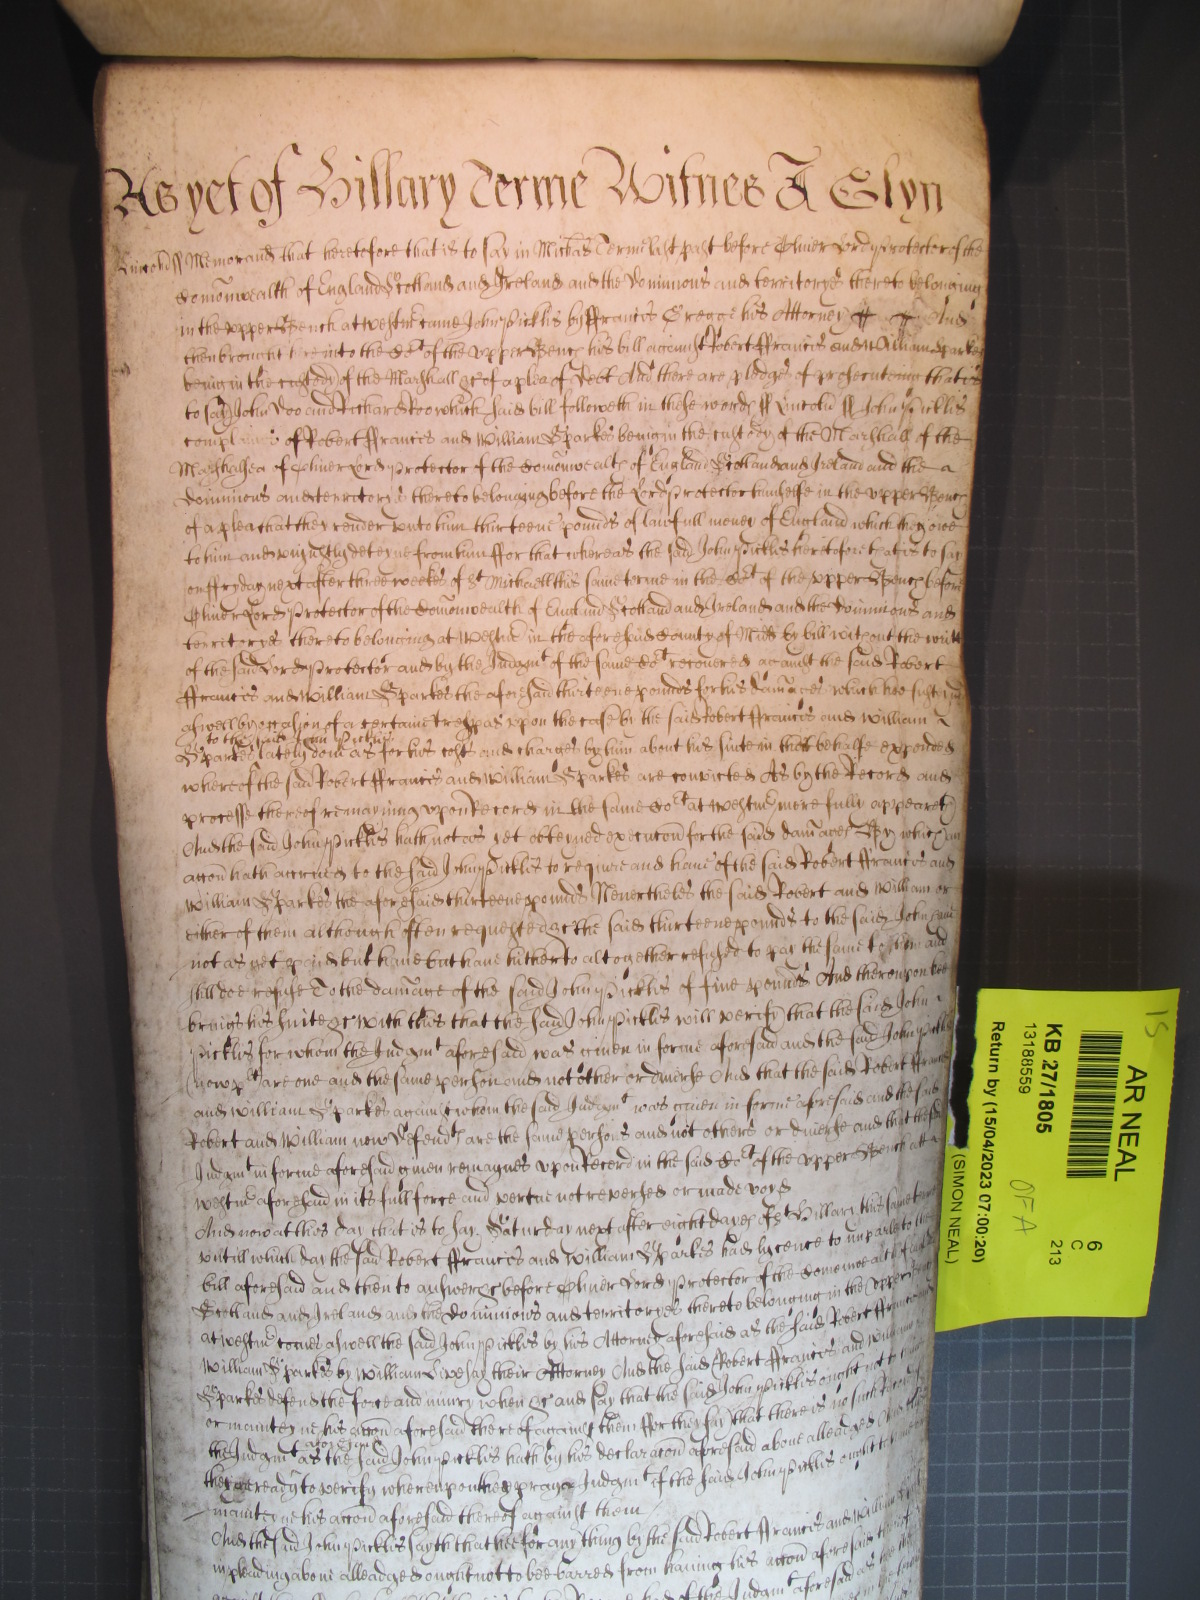 As yet of Hillary Terme Witnes J Glyn
Lincoln ss Memorand that heretofore that is to say in Michās Terme last past before Oliver Lord Protector of the
Comōnwealth of England Scotland and Ireland and the Dominions and territoryes thereto belonging
in the upper Bench at Westmr came John Picklis by Ffrancis Gregge his Attorney And
then brought here into the Cot of the upper Bench his bill against Robert Ffrancis and William Sparkes
being in the custody of the Marshall &c of a plea of Debt And there are pledges of prosecuteing that is
to say John Doo and Richard Roo which said bill followeth in these words ss Lincoln ss John Picklis
complaines of Robert Ffrancis and William Sparkes being in the custody of the Marshall of the
Marshalsea of Oliver Lord Protector of the Comōnwealth of England Scotland and Ireland and the
Dominions and territoryes thereto belonging before the Lord Protector himselfe in the upper Bench
of a plea that they render unto him thirteene pounds of lawfull money of England which they owe
to him and uniustly deteyne from him Ffor that whereas the said John Picklis heretofore that is to say
on Ffryday next after three weekes of St Michaell this same terme in the Cot of the upper Bench before
Oliver Lord Protector of the Comōnwealth of England Scotland and Ireland and the Dominions and
territoryes thereto belonging at Westmr in the aforesaid County of Midd by bill without the writt
of the said Lord Protector and by the Iudgmt of the same Cot recovered against the said Robert
Ffrancis and William Sparkes the aforesaid thirteene pounds for his damāges which hee susteyned
aswell by occasion of a certaine trespas upon the case by the said Robert Ffrancis and William
to the said John Picklis
Sparkes lately done as for his costs and charges by him about his suite in that behalfe expended
whereof the said Robert Ffrancis and William Sparkes are convicted As by the Record and
processe thereof remayning upon Record in the same Cot at Westmr more fully appeareth
And the said John Picklis hath not as yet obteyned execucōn for the said damāges By which an
accōn hath accrued to the said John Picklis to require and have of the said Robert Ffrancis and
William Sparkes the aforesaid thirteene pounds Neverthelesse the said Robert and William or
either of them although often requested &c the said thirteene pounds to the said John have
not as yet paid but have hitherto altogether refused to pay the same to him and
still doe refuse To the damāge of the said John Picklis of five pounds And thereupon hee
brings his suite &c with this that the said John Picklis will verify that the said John
Picklis for whom the Iudgmt aforesaid was given in forme aforesaid and the said John Picklis
now plt are one and the same person and not other or diverse And that the said Robert Ffrancis
and William Sparkes against whom the said Iudgmt was given in forme aforesaid and the said
Robert and William now Defendts are the same persons and not others or diverse and that the said
Iudgmt in forme aforesaid given remaynes upon Record in the said Cot of the upper Bench att
Westmr aforesaid in its full force and vertue not reversed or made voyd
And now at this day that is to say Saturday next after eight dayes of St Hillary this same terme
untill which day the said Robert Ffrancis and William Sparkes had lycence to imparle to the
bill aforesaid and then to answer &c before Oliver Lord Protector of the Comōnwealth of England
Scotland and Ireland and the Dominions and territoryes thereto belonging in the upper Bench
at Westmr comes aswell the said John Picklis by his Attorney aforesaid as the said Robert Ffrancis and
William Sparkes by William Livesay their Attorney And the said Robert Ffrancis and William
Sparkes defend the force and iniury when &c and say that the said John Picklis ought not to have
or mainteyne his accōn aforesaid thereof against them Ffor they say that there is no such Record of
aforesaid
the Iudgmt as the said John Picklis hath by his declaracōn aforesaid above alleadged And this
they are ready to verify whereupon they pray Iudgmt if the said John Picklis ought to have or
mainteyne his accōn aforesaid thereof against them
And the said John Picklis sayth that hee for any thing by the said Robert Ffrancis and William
in pleading above alleadged ought not to bee barred from having his accōn aforesaid
of the Iudgmt aforesaid as
AR NEAL
6
C
213
KB 27/1805
13188559
Return by (15/04/2023 07:00:20)
(SIMON NEAL)
OFA
15